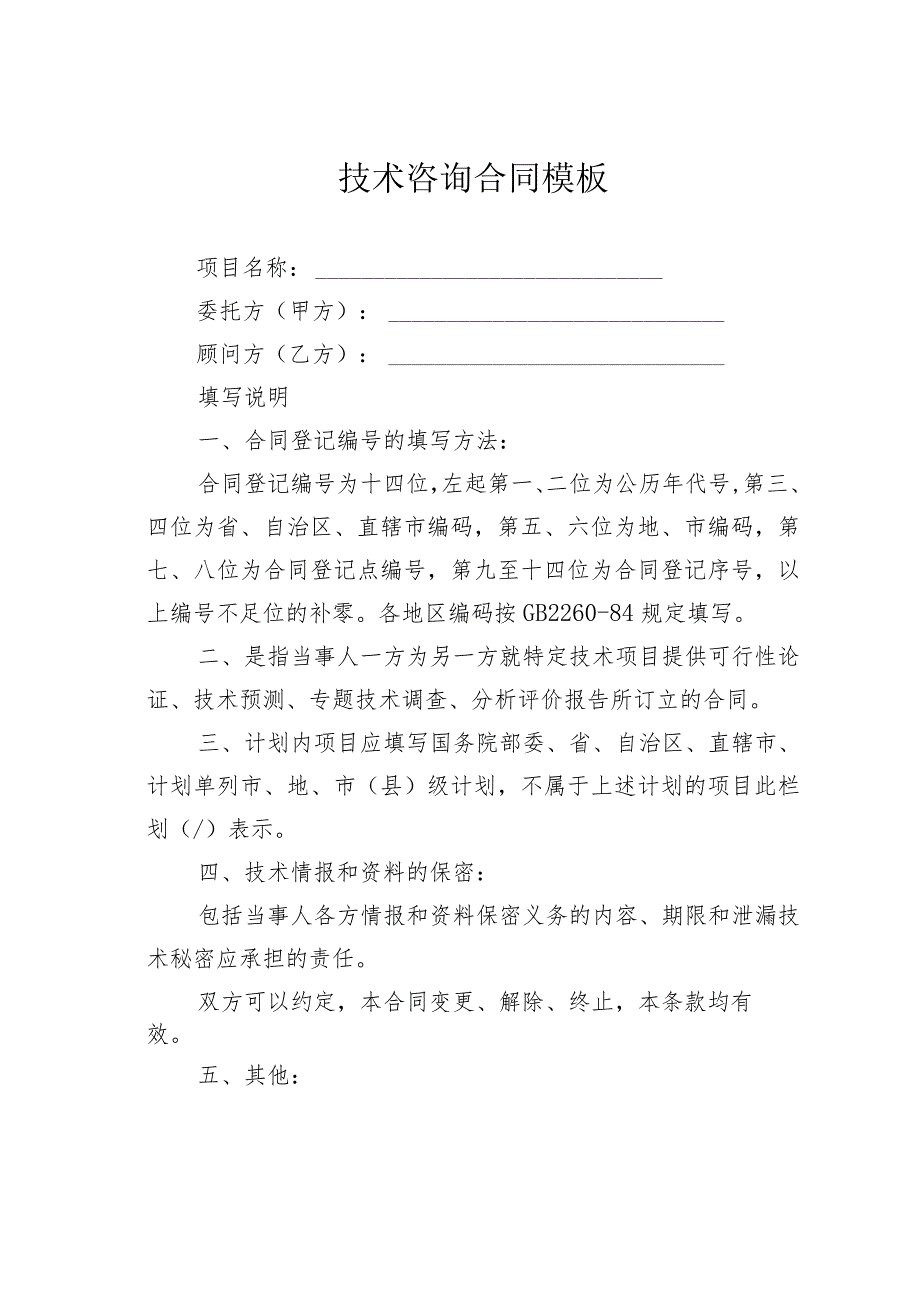 技术咨询合同模板
项目名称：______________________________
委托方（甲方）：_____________________________
顾问方（乙方）：_____________________________
填写说明
一、合同登记编号的填写方法：
合同登记编号为十四位,左起第一、二位为公历年代号,第三、
四位为省、自治区、直辖市编码，第五、六位为地、市编码，第
七、八位为合同登记点编号，第九至十四位为合同登记序号，以
上编号不足位的补零。各地区编码按 GB2260-84 规定填写。
二、是指当事人一方为另一方就特定技术项目提供可行性论
证、技术预测、专题技术调查、分析评价报告所订立的合同。
三、计划内项目应填写国务院部委、省、自治区、直辖市、
计划单列市、地、市（县）级计划，不属于上述计划的项目此栏
划（/）表示。
四、技术情报和资料的保密：
包括当事人各方情报和资料保密义务的内容、期限和泄漏技
术秘密应承担的责任。
双方可以约定，本合同变更、解除、终止，本条款均有
效。
五、其他：